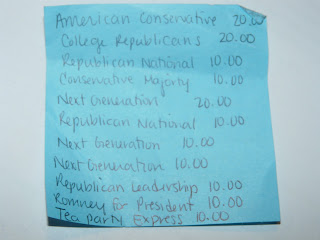 American Conservative 20.00
College Republicans 20.00
Republican National 10.00
Conservative Majority 10.00
Next Generation 20.00
Republican National 10.00
Next Generation 10.00
Next Generation 10.00
Republican Leadership 10.00
Romney for President 10.00
Tea party Express 10.00